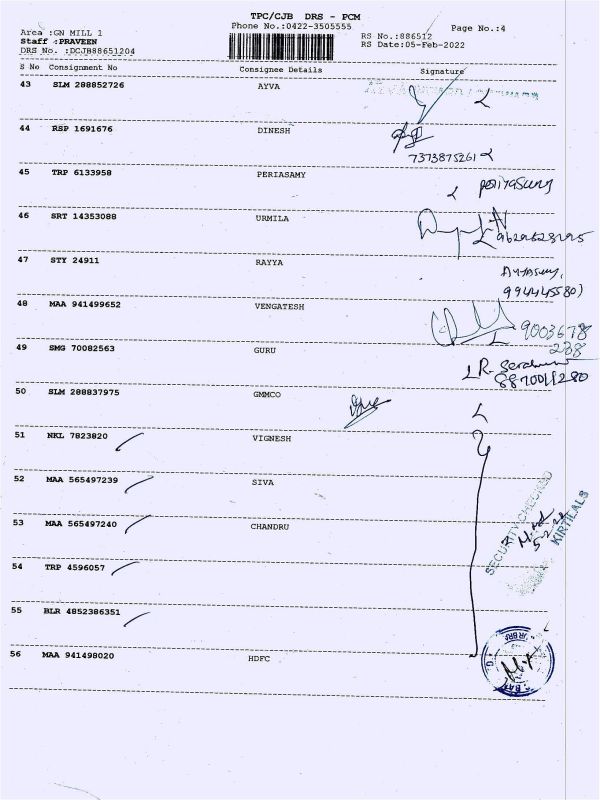 TPC/CJB DRS - PCM
Phone No.:0422-3505555
Page No.:4
Area :GN MILL 1
RS No.:886512
Staff :PRAVEEN
RS Date:05-Feb-2022
DRS No. :DCJB88651204
S No Consignment No Consignee Details Signature
43 SLM 288852726 AYVA
44 RSP 1691676 DINESH
7373875261
45 TRP 6133958 PERIASAMY
periyasamy
46 SRT 14353088 URMILA
47 STY 24911 RAYYA
48 MAA 941499652 VENGATESH
9003678
288
49 SMG 70082563 GURU
50 SLM 288837975 GMMCO
51 NKL 7823820 VIGNESH
52 MAA 565497239 SIVA
SECURITY CHECKED
KIRTILALS
53 MAA 565497240 CHANDRU
54 TRP 4596057
55 BLR 4852386351
56 MAA 941498020 HDFC